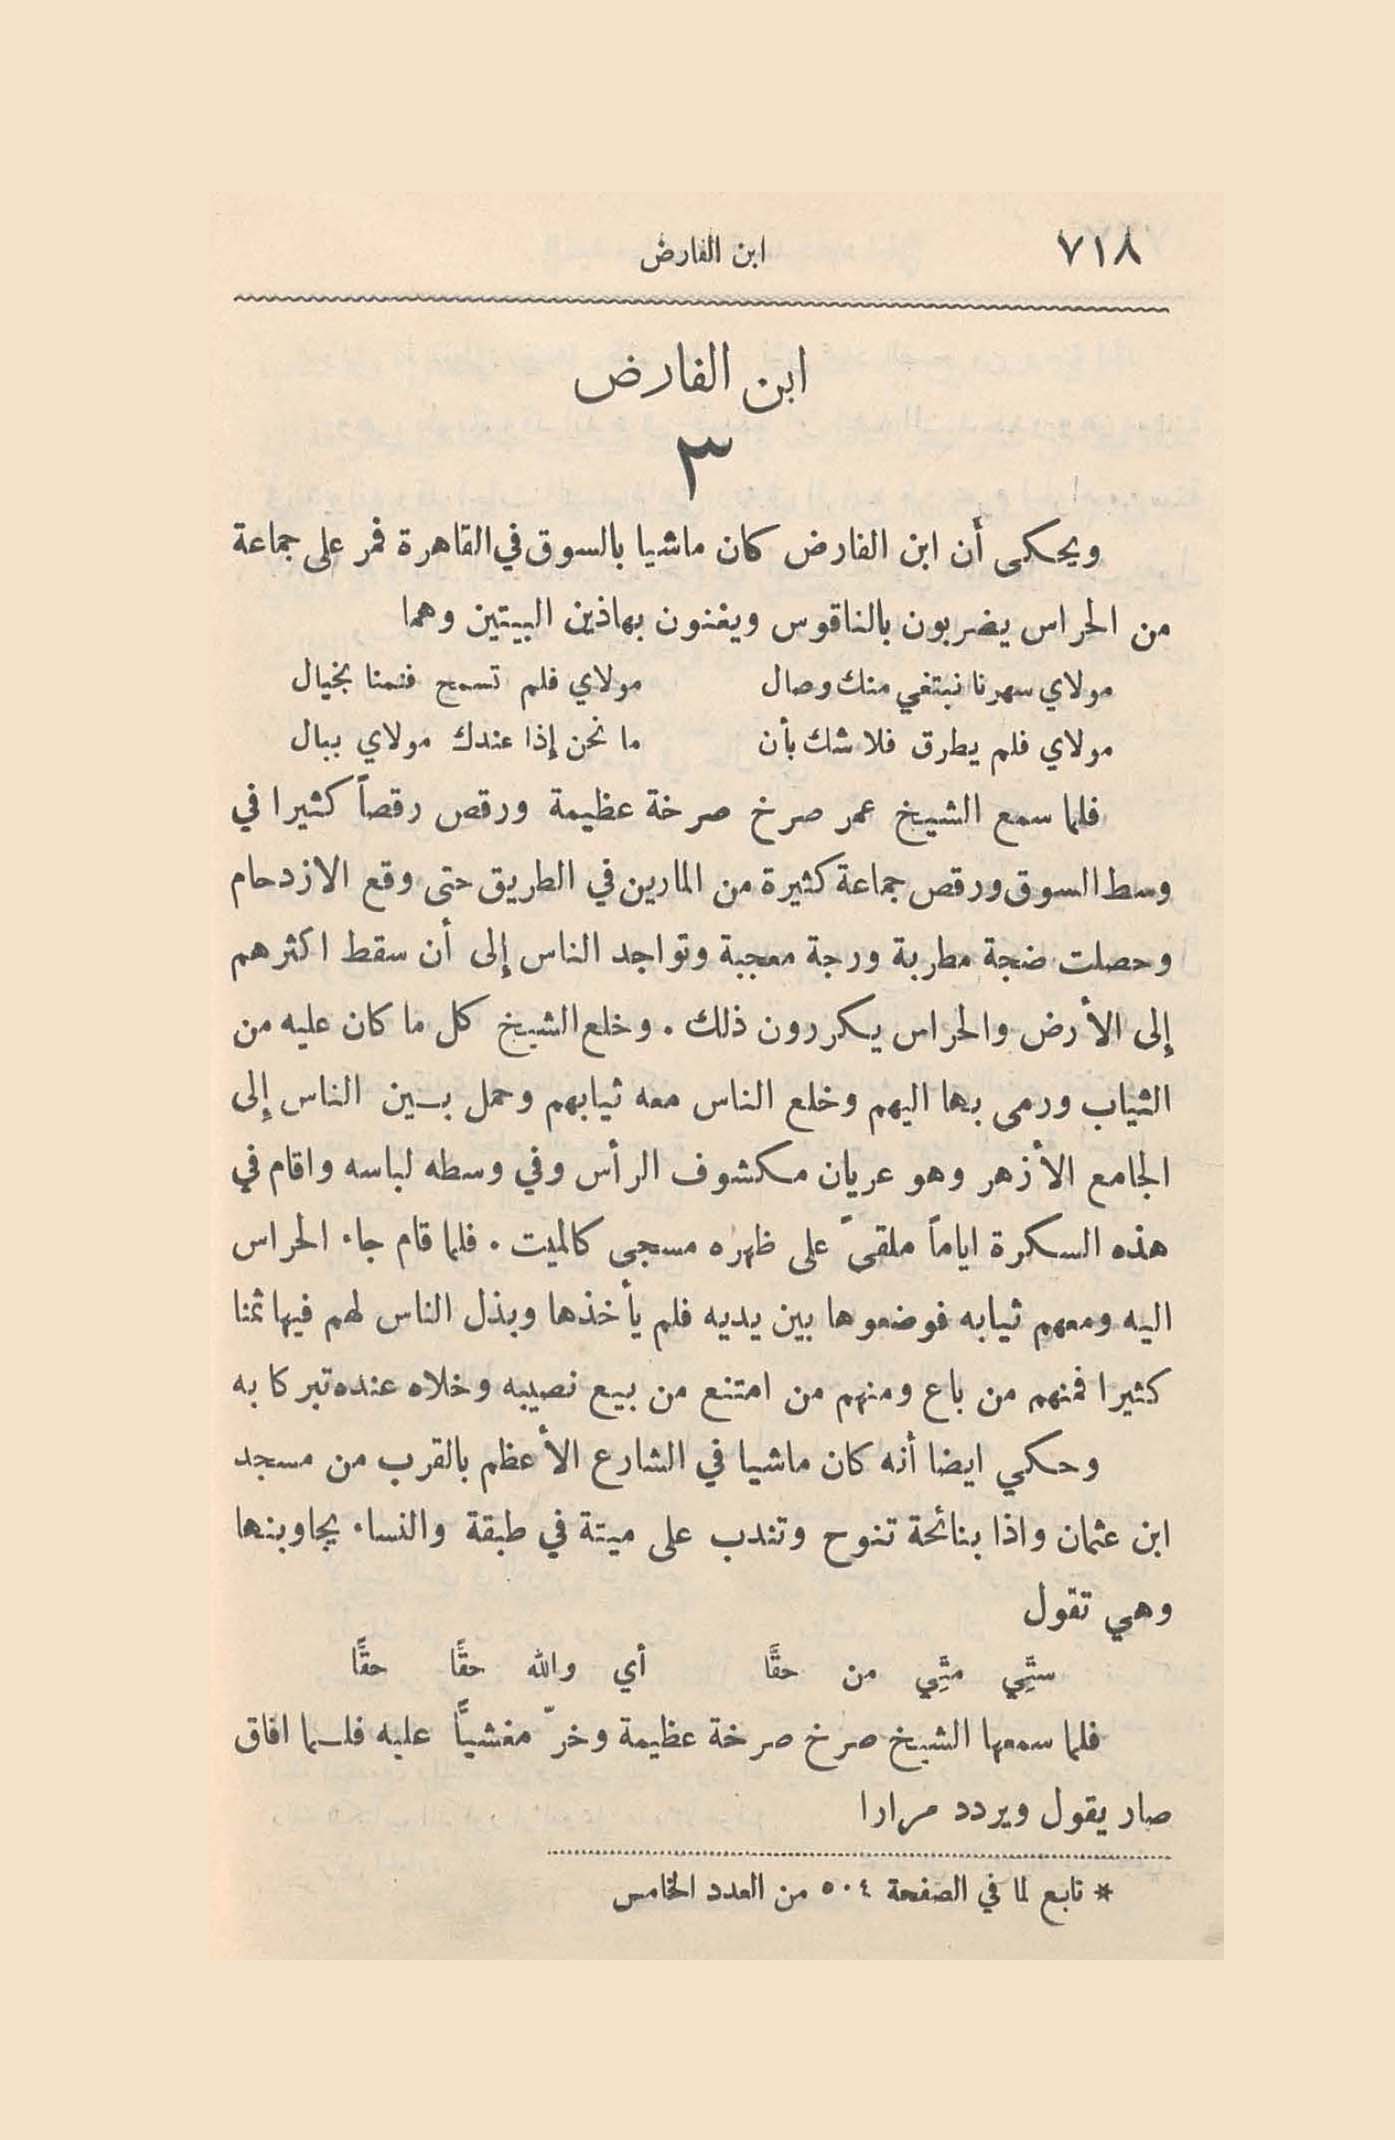 ٧١٨ ابن الفارض
ابن الفارض
٣
ويحكى أن ابن الفارض كان ماشيا بالسوق في القاهرة فمر على جماعة
من الحراس يضربون بالناقوس ويغنون بهاذين البيتين وهما
مولاي سهرنا نبتغي منك وصال مولاي فلم تسمح فنمنا بخيال
مولاي فلم يطرق فلا شك بأن ما نحن إذا عندك مولاي ببال
فلما سمع الشيخ عمر صرخ صرخة عظيمة ورقص رقصاً كثيرا في
وسط السوق ورقص جماعة كثيرة من المارين في الطريق حتى وقع الازدحام
وحصلت ضجة مطربة ورجة معجبة وتواجد الناس إلى أن سقط اكثرهم
إلى الأرض والحراس يكررون ذلك . وخلع الشيخ كل ما كان عليه من
الثياب ورمى بها اليهم وخلع الناس معه ثيابهم وحمل بين الناس إلى
الجامع الأزهر وهو عريان مكشوف الرأس وفي وسطه لباسه واقام في
هذه السكرة اياماً ملقىً على ظهره مسجى كالميت . فلما قام جاء الحراس
اليه ومعهم ثيابه فوضعوها بين يديه فلم يأخذها وبذل الناس لهم فيها ثمنا
كثيرا فمنهم من باع ومنهم من امتنع من بيع نصيبه وخلاه عنده تبركا به
وحكي ايضا أنه كان ماشيا في الشارع الأعظم بالقرب من مسجد
ابن عثمان واذا بنائحة تنوح وتندب على ميتة في طبقة والنساء يجاوبنها
وهي تقول
ستِّي متِّي من حقًّا أي والله حقًّا حقًّا
فلما سمعها الشيخ صرخ صرخة عظيمة وخرّ مغشياً عليه فلما افاق
صار يقول ويردد مرارا
* تابع لما في الصفحة ٥٠٤ من العدد الخامس